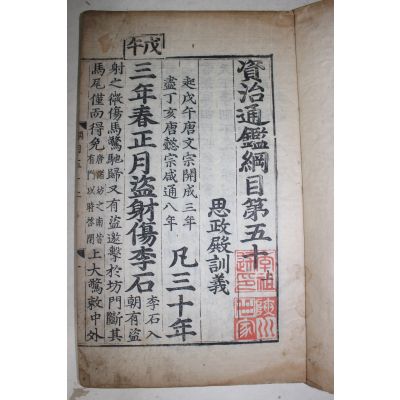 資治通鑑綱目第五十
思政殿訓義
起戊午唐文宗開成三年
盡丁亥唐懿宗咸通八年
凡三十年
戊午
三年春正月盜射傷李石
李石入
朝有盜
射之微傷馬驚馳歸又有盜邀擊於坊門斷其
馬尾僅而得免
有門以時啓閉
上大驚敕中外